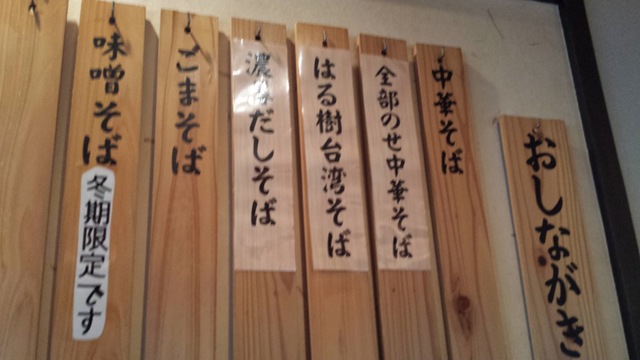 おしながき
中華そば
全部のせ中華そば
はる樹台湾そば
濃厚だしそば
ごまそば
味噌そば
冬期限定です